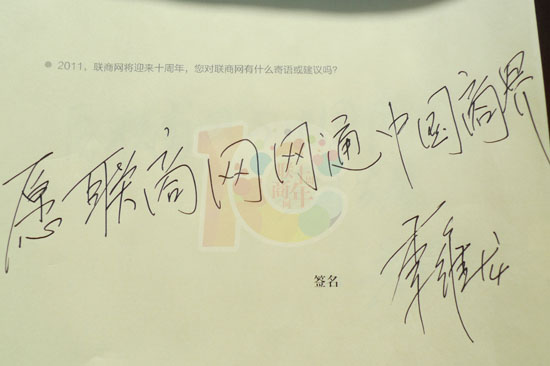 ● 2011、联商网将迎来十周年，您对联商网有什么寄语或建议吗？
愿联商网网通中国商界
签名